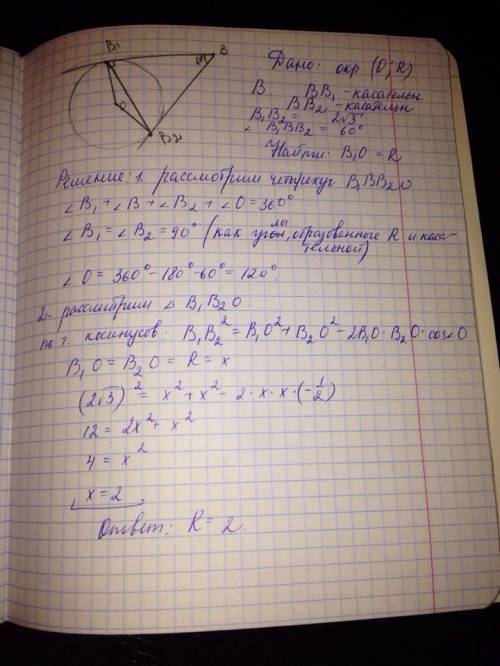 B1
B
O
B2
Дано: окр (O; R)
B. BB1 - касательн
BB2 - касательн
B1B2 = 2√3
∠B1BB2 = 60°
Найти: B1O = R
Решение: 1. рассмотрим четырехуг B1BB2O
∠B1 + ∠B + ∠B2 + ∠O = 360°
∠B1 = ∠B2 = 90° (как углы, образованные R и каса-
тельной)
∠O = 360° - 180° - 60° = 120°.
2. рассмотрим △ B1B2O.
по т. косинусов: B1B2² = B1O² + B2O² - 2B1O · B2O · cos∠O
B1O = B2O = R = x
(2√3)² = x² + x² - 2 · x · x · (-1/2)
12 = 2x² + x²
4 = x²
x = 2
Ответ: R = 2.